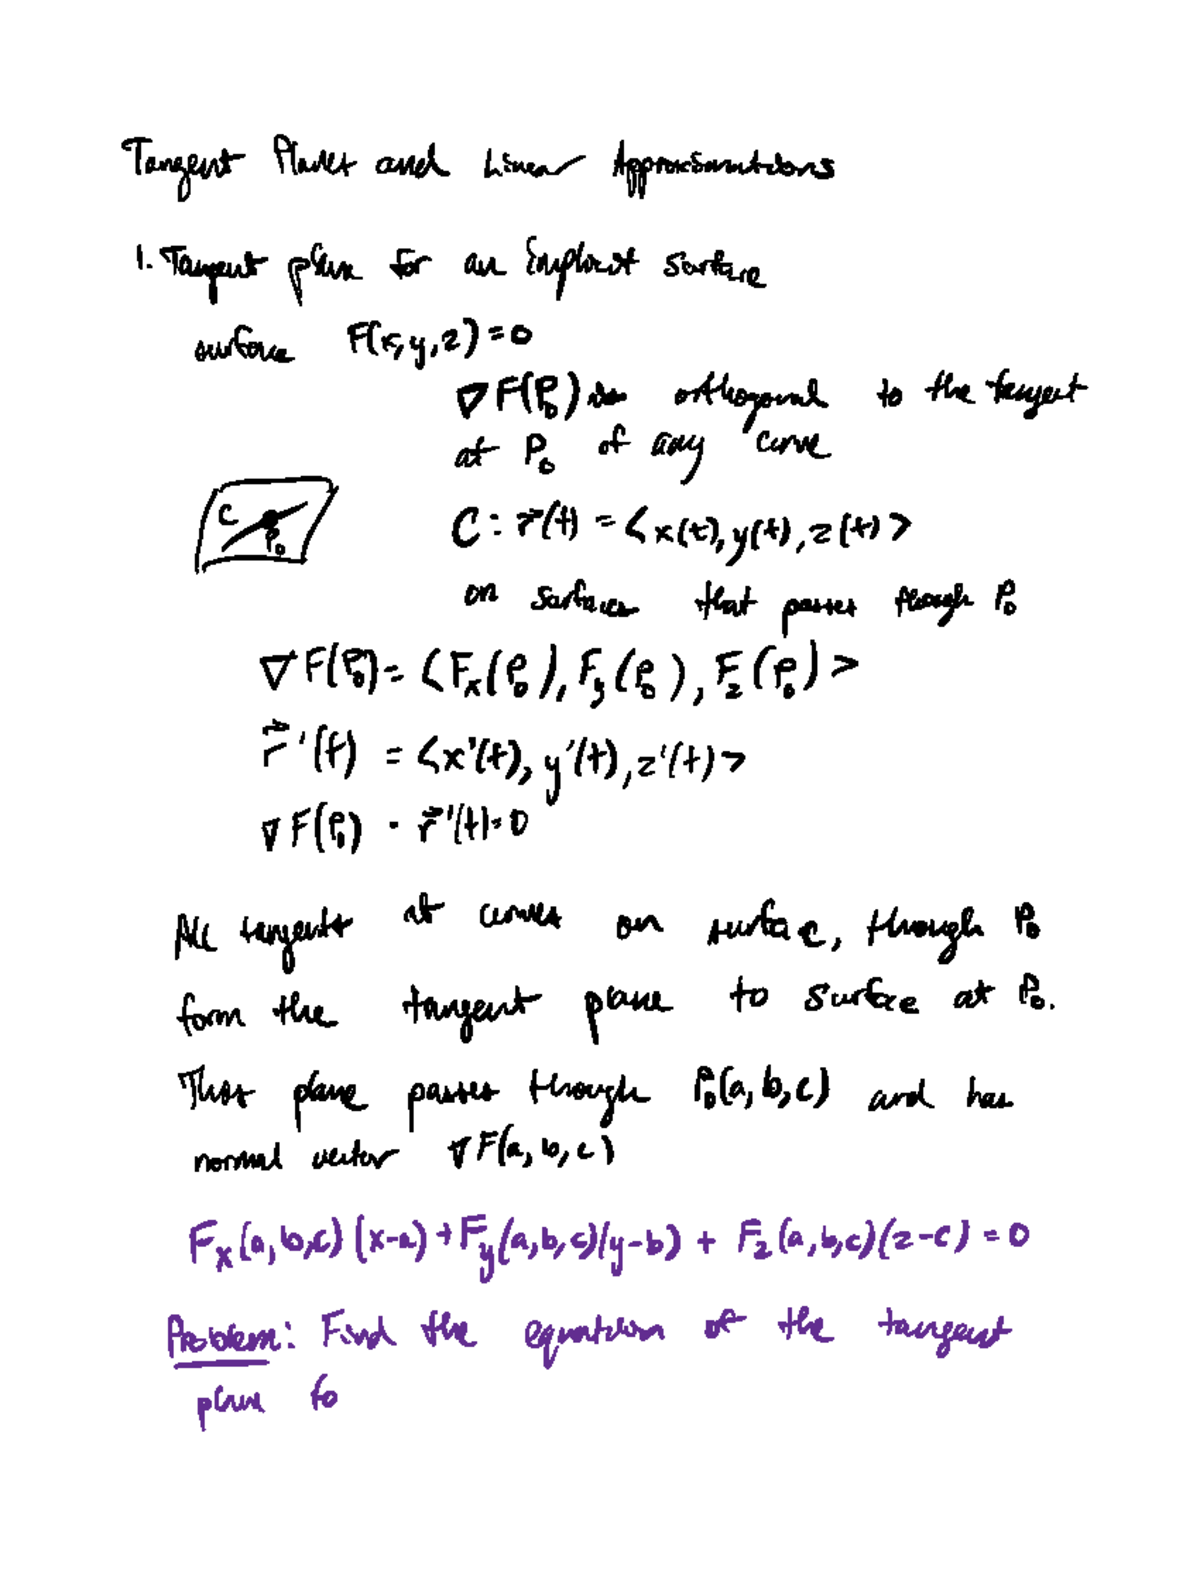 Tangent Planes and Linear Approximations
1. Tangent plane for an implicit surface
surface F(x,y,z)=0
∇F(P₀) is orthogonal to the tangent
at P₀ of any curve
C
P₀
C: r⃗(t) = <x(t), y(t), z(t)>
on surfaces that passes through P₀
∇F(P₀) = <Fₓ(P₀), F_y(P₀), F_z(P₀)>
r⃗'(t) = <x'(t), y'(t), z'(t)>
∇F(P₀) · r⃗'(t)=0
All tangents at curves on surface, through P₀
form the tangent plane to surface at P₀.
This plane passes through P₀(a,b,c) and has
normal vector ∇F(a,b,c)
Fₓ(a,b,c)(x-a)+F_y(a,b,c)(y-b) + F_z(a,b,c)(z-c) = 0
Problem: Find the equation of the tangent
plane to